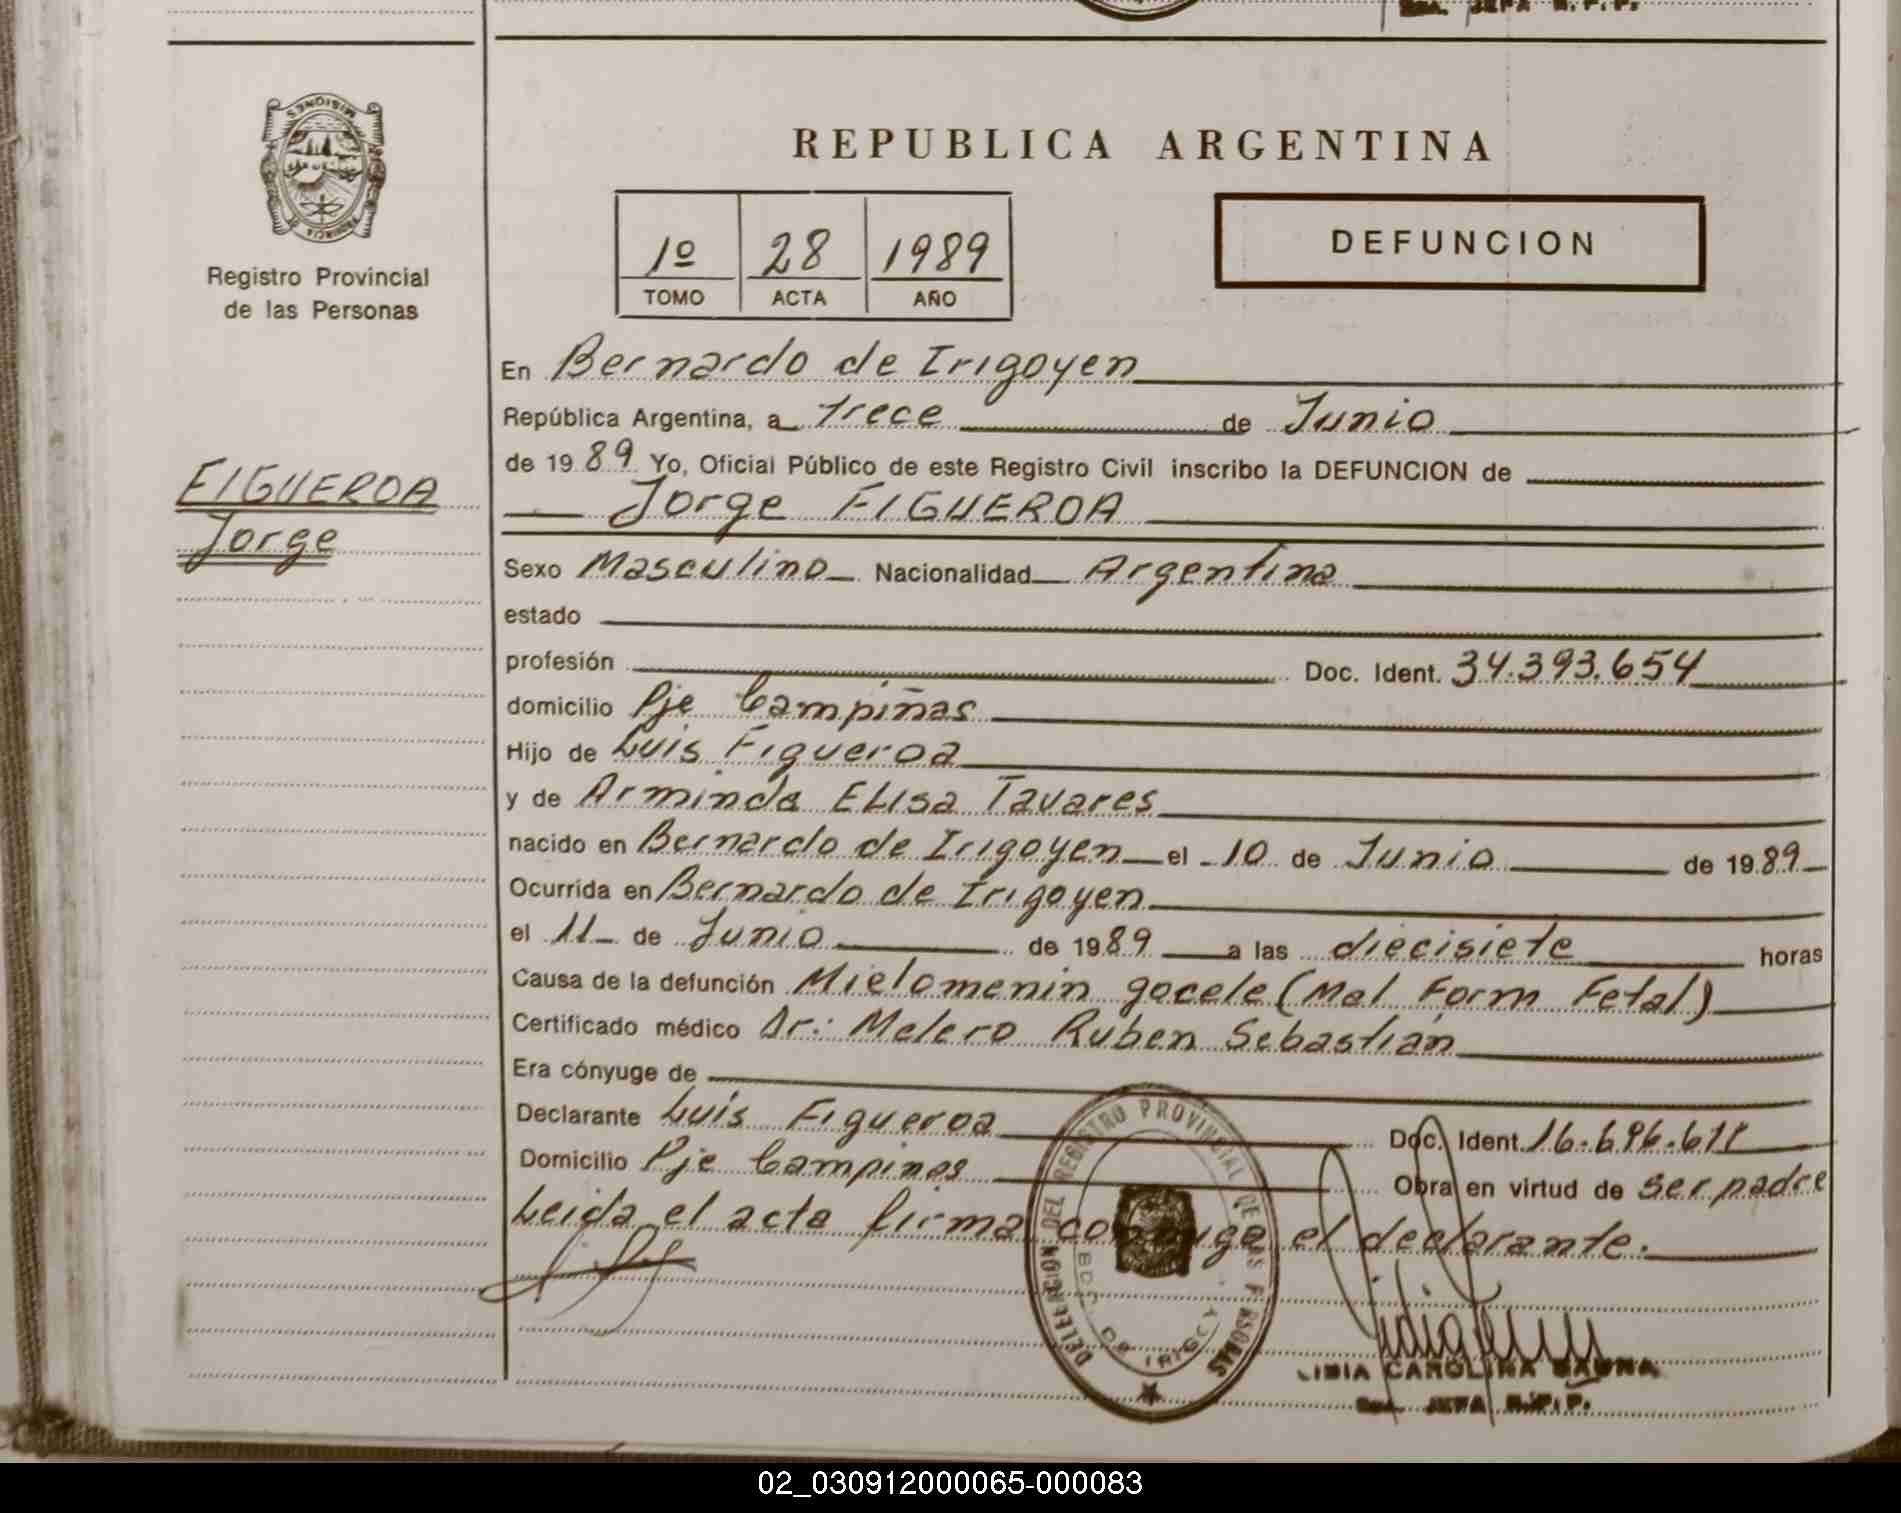 Sra. JEFA R.P.P.
MISIONES
PROVINCIA DE
Registro Provincial
de las Personas
REPUBLICA ARGENTINA
1º 28 1989
TOMO ACTA AÑO
DEFUNCION
En Bernardo de Irigoyen
República Argentina, a trece de Junio
de 1989 Yo, Oficial Público de este Registro Civil inscribo la DEFUNCION de
Jorge FIGUEROA
FIGUEROA
Jorge
Sexo Masculino Nacionalidad Argentina
estado
profesión Doc. Ident. 34.393.654
domicilio Pje Campiñas
Hijo de Luis Figueroa
y de Arminda Elisa Tavares
nacido en Bernardo de Irigoyen el 10 de Junio de 1989
Ocurrida en Bernardo de Irigoyen
el 11 de Junio de 1989 a las diecisiete horas
Causa de la defunción Mielomenin gocele (Mal Form Fetal)
Certificado médico Dr.: Melero Ruben Sebastian
Era cónyuge de
Declarante Luis Figueroa Doc. Ident.
Domicilio Pje Campinas Obra en virtud de ser padre
Leida el acta firma conmigo el declarante.
DELEGACION DEL REGISTRO PROVINCIAL DE LAS PERSONAS
BDO. DE IRIGOYEN
LIDIA CAROLINA
Sra. JEFA R.P.P.
02_030912000065-000083